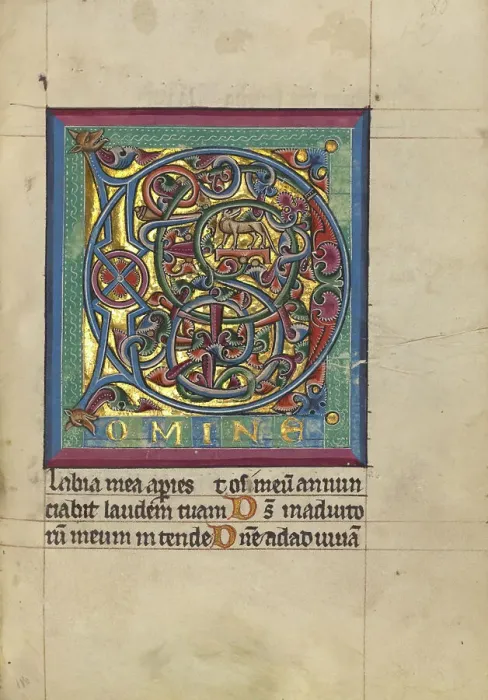 D
OMINE
labia mea apies τ os meū annun
ciabit laudem tuam D s̄ in adiuto
riū meum in tende D n̄e ad adiuuā